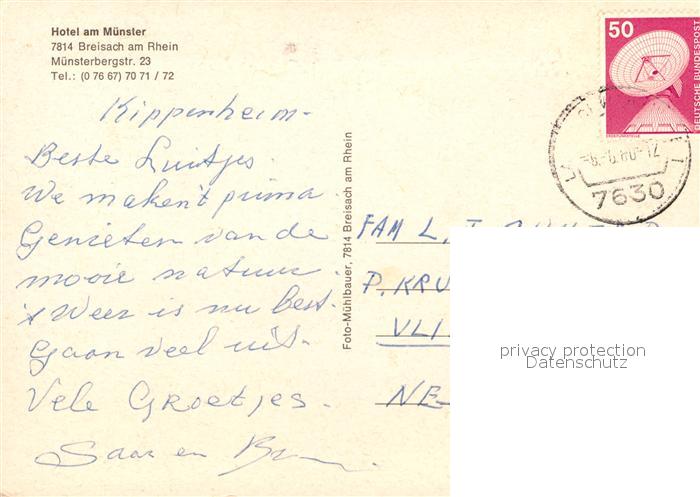 Hotel am Münster
7814 Breisach am Rhein
Münsterbergstr. 23
Tel.: (0 76 67) 70 71 / 72
Kippenheim-
Beste Luitjes.
We maken't prima.
Genieten van de
mooie natuur.
't Weer is nu best-
Gaan veel uit-
Vele Groetjes-
Saar en
Foto-Mühlbauer, 7814 Breisach am Rhein
50
DEUTSCHE BUNDESPOST
7630
FAM L.
P. KRU
VLI
NE-
privacy protection
Datenschutz